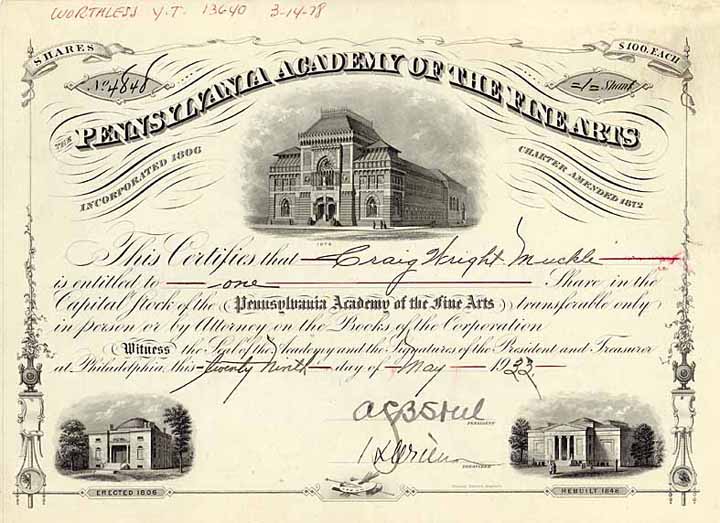 WORTHLESS Y.T. 13640 3-14-78
SHARES
$100. EACH
No. 4848
-1- Share
THE PENNSYLVANIA ACADEMY OF THE FINE ARTS
INCORPORATED 1806
CHARTER AMENDED 1872
1876
This Certifies that Craig Wright Muckle
is entitled to one Share in the
Capital Stock of the Pennsylvania Academy of the Fine Arts transferable only
in person or by Attorney on the Books of the Corporation
Witness the Seal of the Academy and the Signatures of the President and Treasurer
at Philadelphia, this Twenty Ninth day of May 1933
PRESIDENT
TREASURER
ERECTED 1806
REBUILT 1846